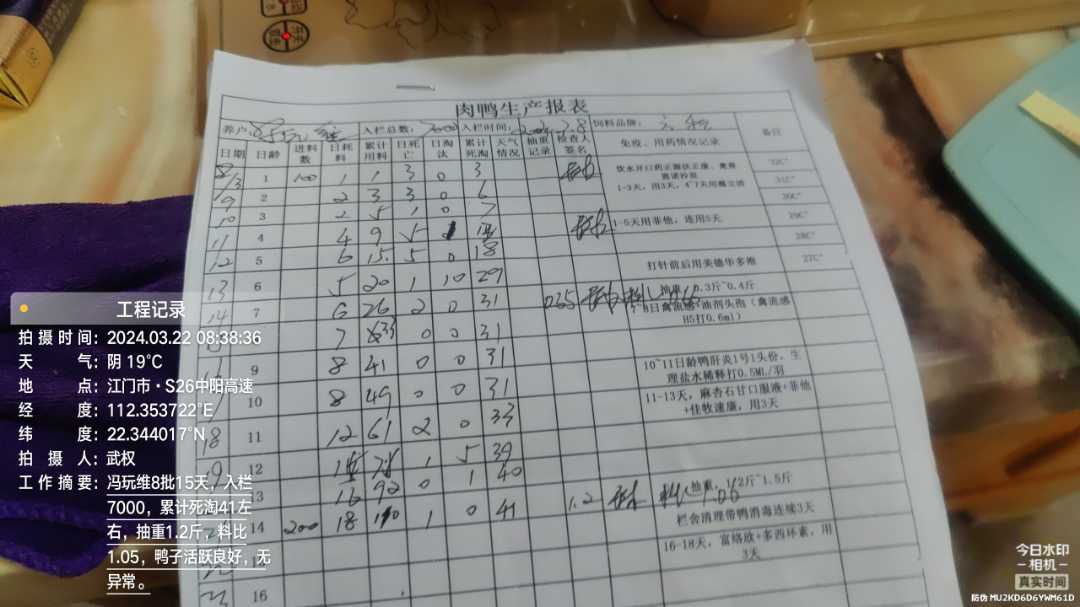 肉鸭生产报表
养户: 入栏总数: 7000 入栏时间: 3.8 饲料品牌:
日期 日龄 进料数 日耗料 累计用料 日死亡 日淘汰 累计死淘 天气情况 抽重记录 检查人签名 免疫、用药情况记录 备注
8/3 1 100 1 1 3 0 3
1-3天,用3天,4~7天用
32C°
31C°
9 2 2 3 3 0 6
30C°
10 3 2 5 1 0 7
1-5天用菲他,连用5天
29C°
11 4 4 9 5
28C°
12 5 6 15 5 0 18
打针前后用美德华多维
27C°
13 6 5 20 1 10 29
0.3斤~0.4斤
14 7 6 26 2 0 31 0.35
8日禽流感+油剂头孢(禽流感H5打0.6ml)
7 33 0 0 31
9 8 41 0 0 31
10~11日龄鸭肝炎1号1头份,生理盐水稀释打0.5ML/羽
10 8 49 0 0 31
11-13天,麻杏石甘口服液+菲他+佳牧速康,用3天
18 11 12 61 2 0 33
19 12 1 5 39
13 16 92 0 1 40
抽重, 1.2斤~1.5斤
14 200 18 110 1 0 41 1.2
栏舍清理带鸭消毒连续3天
16-18天,富络欣+多西环素,用3天
23 16
工程记录
拍摄时间: 2024.03.22 08:38:36
天气: 阴 19℃
地点: 江门市·S26中阳高速
经度: 112.353722°E
纬度: 22.344017°N
拍摄人: 武权
工作摘要: 冯玩维8批15天,入栏
7000,累计死淘41左
右,抽重1.2斤,料比
1.05,鸭子活跃良好,无
异常。
今日水印
相机
真实时间
防伪 MU2KD6D6YWM61D